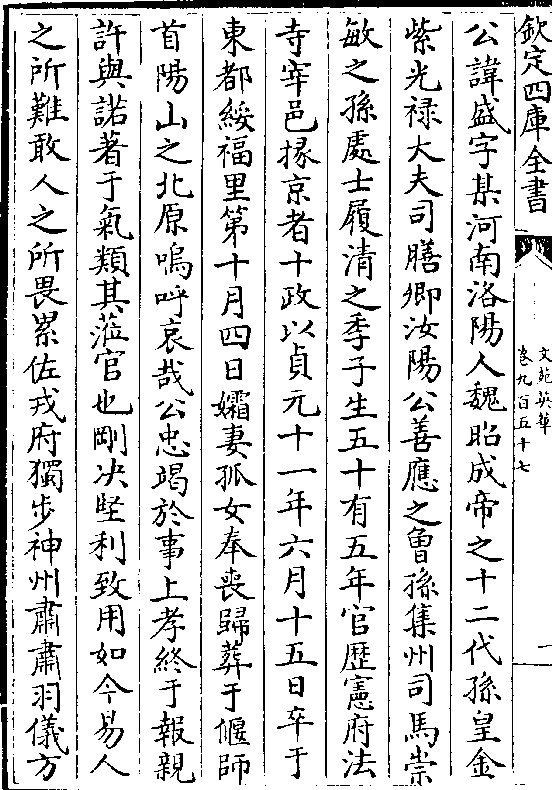 欽定四庫全書
文苑英華
卷九百五十七
一
公諱盛字某河南洛陽人魏昭成帝之十二代孫皇金
紫光禄大夫司膳卿汝陽公善應之曾孫集州司馬崇
敏之孫處士履清之季子生五十有五年官歴憲府法
寺宰邑掾京者十政以貞元十一年六月十五日卒于
東都綏福里第十月四日孀妻孤女奉喪歸葬于偃師
首陽山之北原嗚呼哀哉公忠竭於事上孝終于報親
許與諾著于氣類其蒞官也剛决堅利致用如今易人
之所難敢人之所畏累佐戎府獨步神州肅肅羽儀方